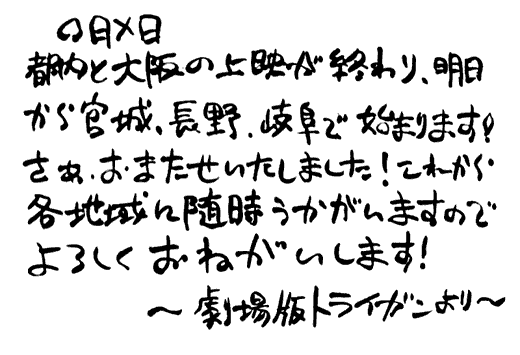 〇月×日
都内と大阪の上映が終わり、明日
から宮城、長野、岐阜で始まります!
さぁ、おまたせいたしました!これから
各地域に随時うかがいますので
よろしくおねがいします!
～劇場版トライガンより～